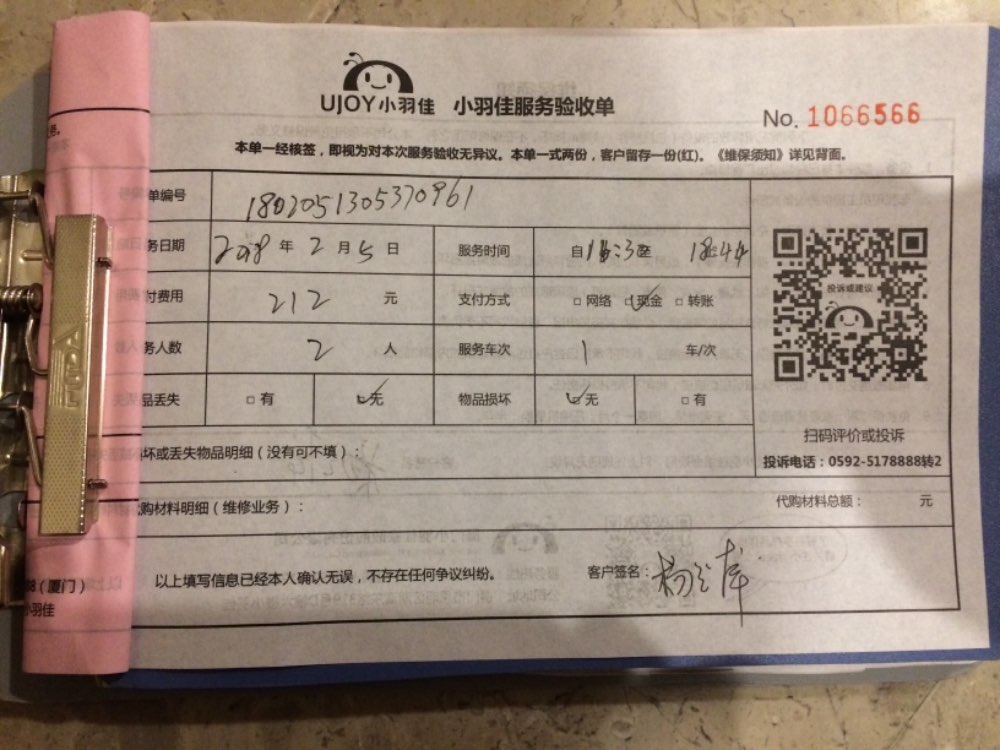 UJOY小羽佳 小羽佳服务验收单
No. 1066566
本单一经核签，即视为对本次服务验收无异议。本单一式两份，客户留存一份(红)。《维保须知》详见背面。
单编号 1802051305370961
务日期 2018 年 2 月 5 日 服务时间 自 至 18:44
付费用 212 元 支付方式 □ 网络 □ 现金 □ 转账
务人数 2 人 服务车次 1 车/次
品丢失 □ 有 □ 无 物品损坏 □ 无 □ 有
投诉或建议
扫码评价或投诉
投诉电话：0592-5178888转2
坏或丢失物品明细（没有可不填）：
购材料明细（维修业务）： 代购材料总额： 元
以上填写信息已经本人确认无误，不存在任何争议纠纷。 客户签名：
（厦门）
小羽佳